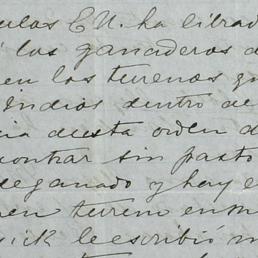 ulas E.U. ha librad
los ganaderos d
en los terrenos qu
Indios dentro de
cia desta orden d
contrar sin pasto
de ganado y hay e
en terreno en m
sick le escribió m